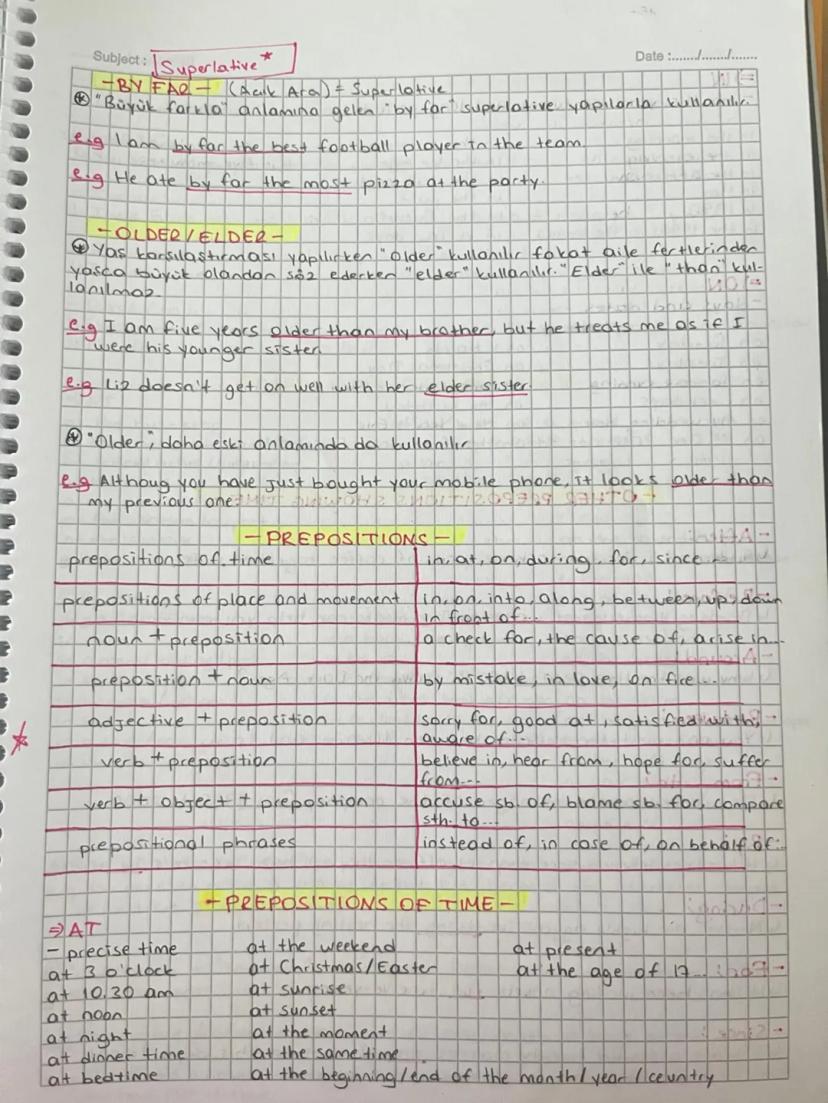 Subject: Superlative*
Date:....../....../......
-BY FAR- (Açık Ara) = Superlative
"Büyük farkla" anlamına gelen "by far" superlative yapılarla kullanılır.
e.g I am by far the best football player in the team.
e.g He ate by far the most pizza at the party.
-OLDER/ELDER-
Yaş karşılaştırması yapılırken "older" kullanılır fakat aile fertlerinden
yaşca büyük olandan söz ederken "elder" kullanılır. "Elder" ile "than" kul-
lanılmaz.
e.g I am five years older than my brother, but he treats me as if I
were his younger sister.
e.g Liz doesn't get on well with her elder sister.
"Older", daha eski anlamında da kullanılır
e.g Althoug you have just bought your mobile phone, it looks older than
my previous one.
-PREPOSITIONS-
prepositions of time in, at, on, during, for, since...
prepositions of place and movement in, on, into, along, between, up, down
in front of...
noun + preposition a check for, the cause of, arise in...
preposition + noun by mistake, in love, on fire...
adjective + preposition sorry for, good at, satisfied with,
aware of...
verb + preposition believe in, hear from, hope for, suffer
from...
verb + object + preposition accuse sb. of, blame sb. for, compare
sth. to...
prepositional phrases instead of, in case of, on behalf of...
-PREPOSITIONS OF TIME-
⇒ AT
- precise time at the weekend at present
at 3 o'clock at Christmas/Easter at the age of 17...
at 10.30 am at sunrise
at noon at sunset
at night at the moment
at dinner time at the same time
at bedtime at the beginning/end of the month/year/ceuntry